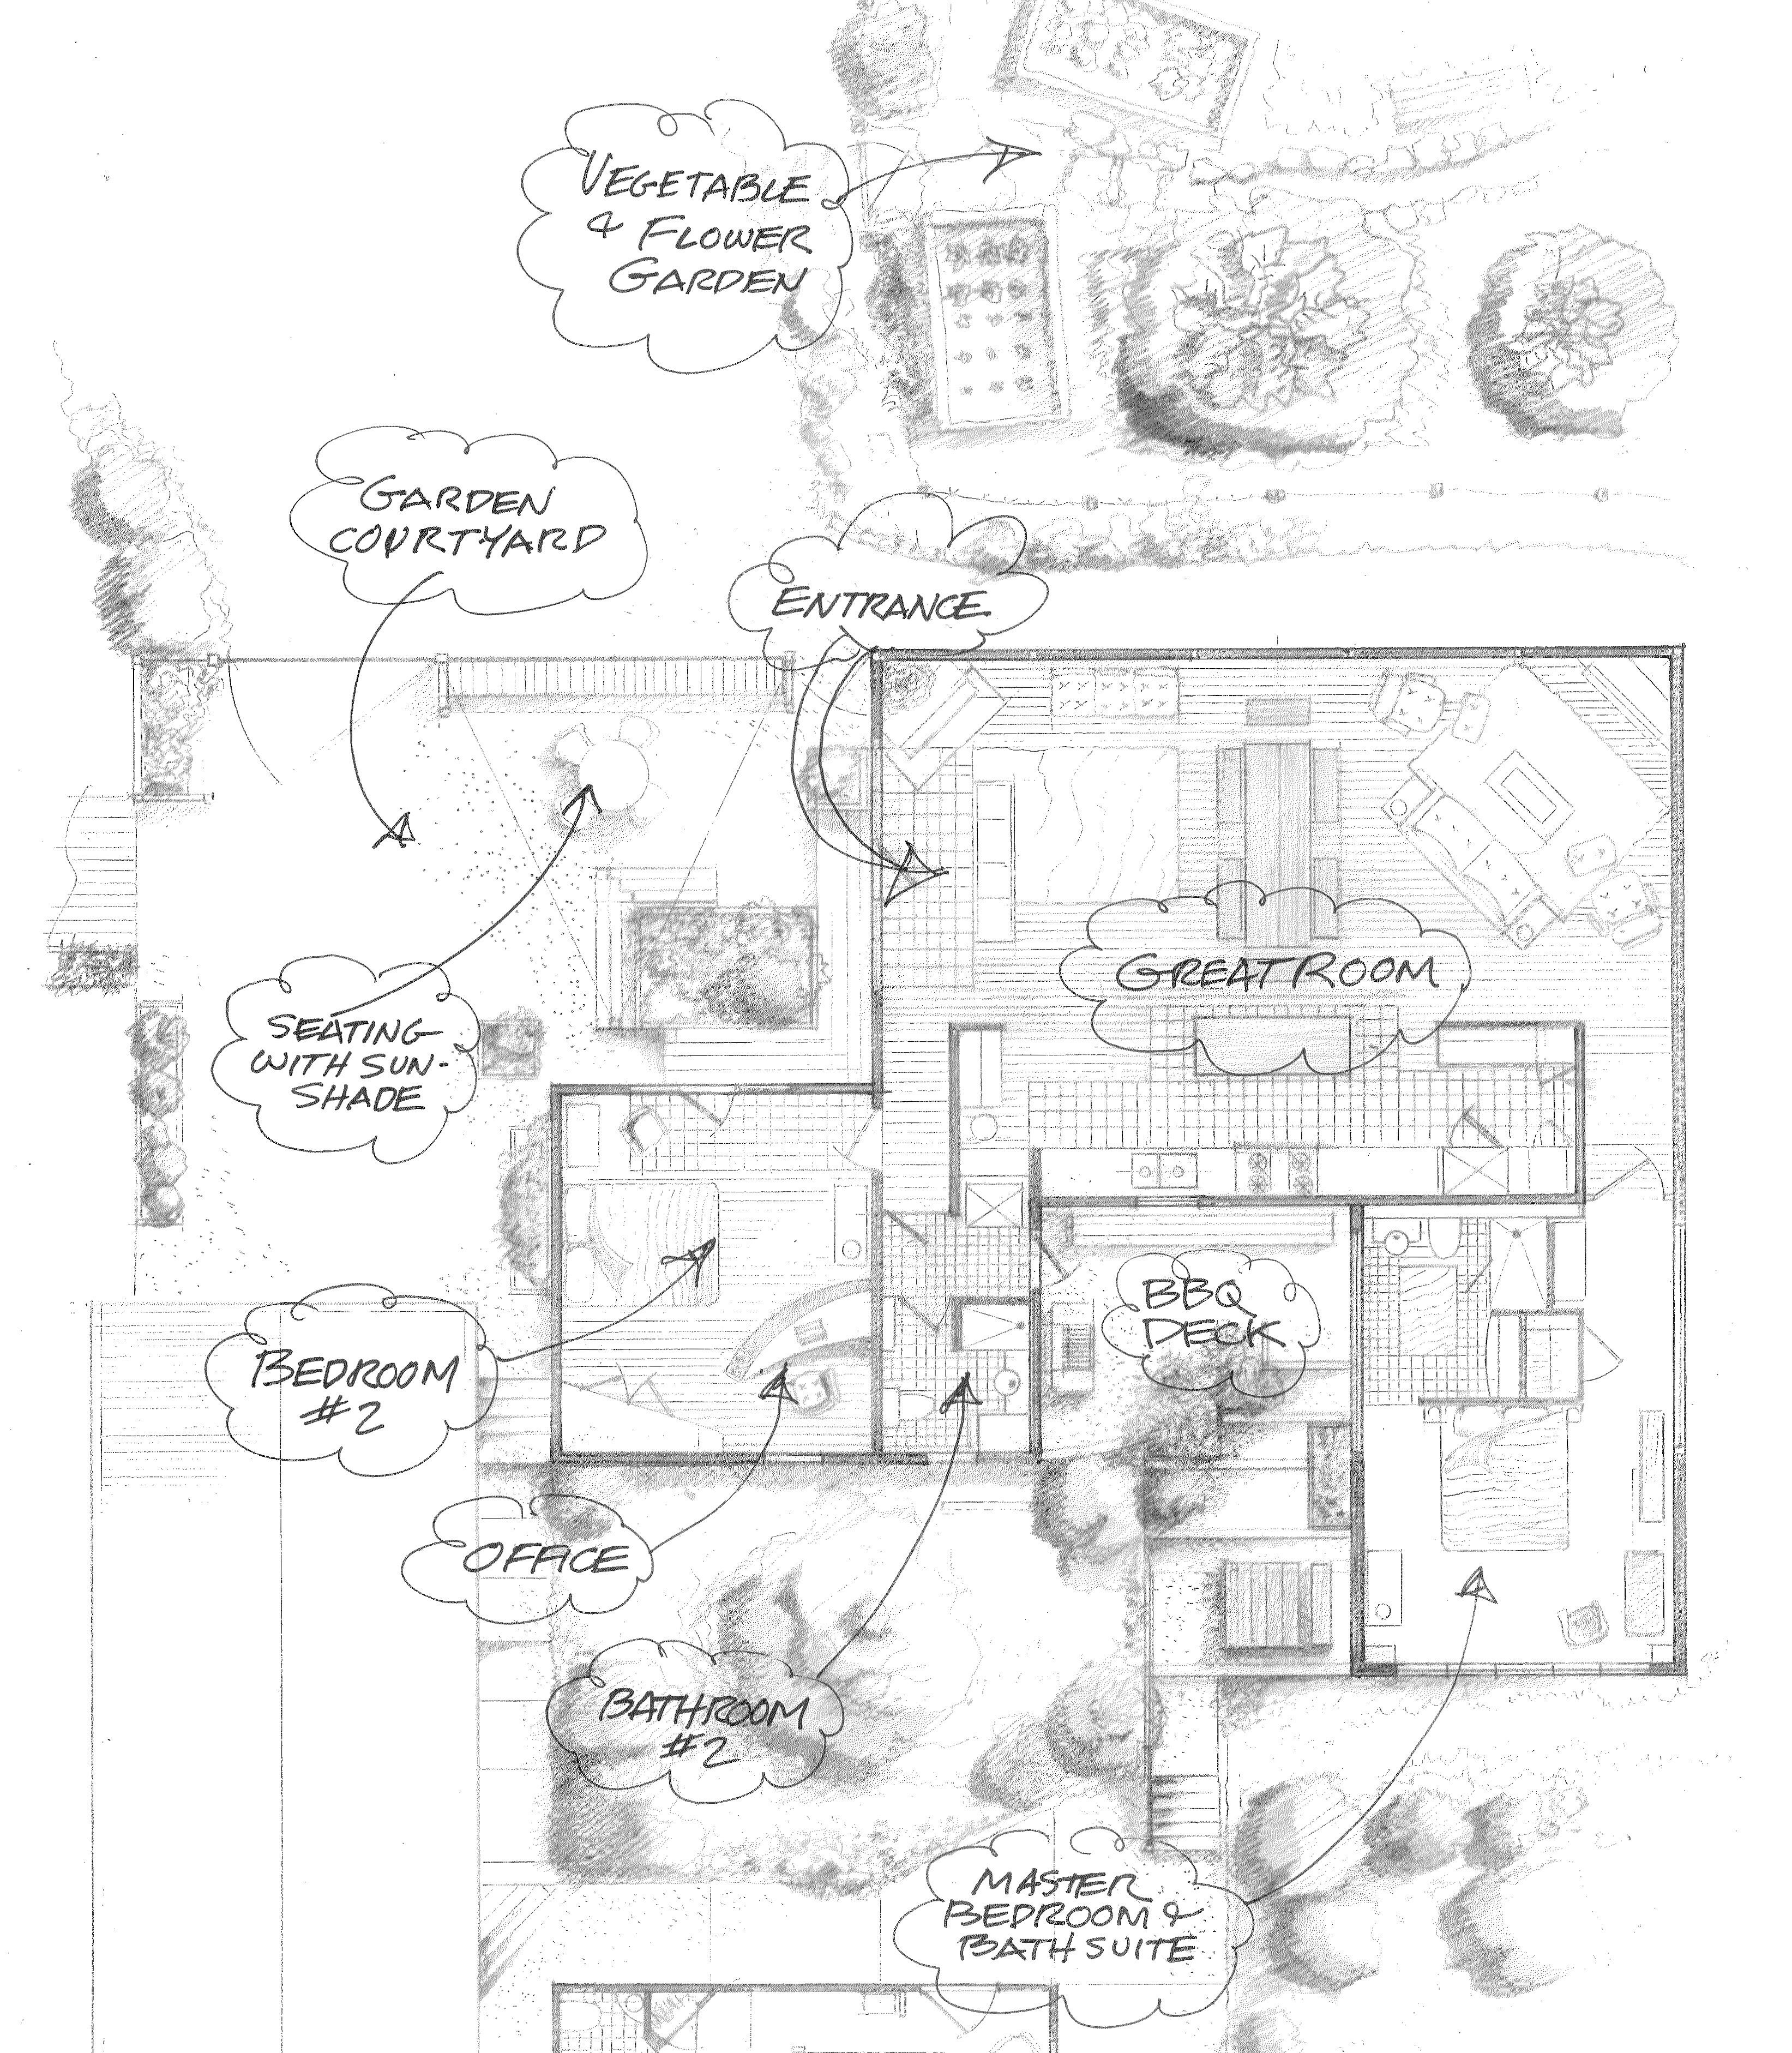 VEGETABLE
& FLOWER
GARDEN
GARDEN
COURTYARD
ENTRANCE
GREAT ROOM
SEATING
WITH SUN-
SHADE
BBQ
DECK
BEDROOM
#2
OFFICE
BATHROOM
#2
MASTER
BEDROOM &
BATH SUITE